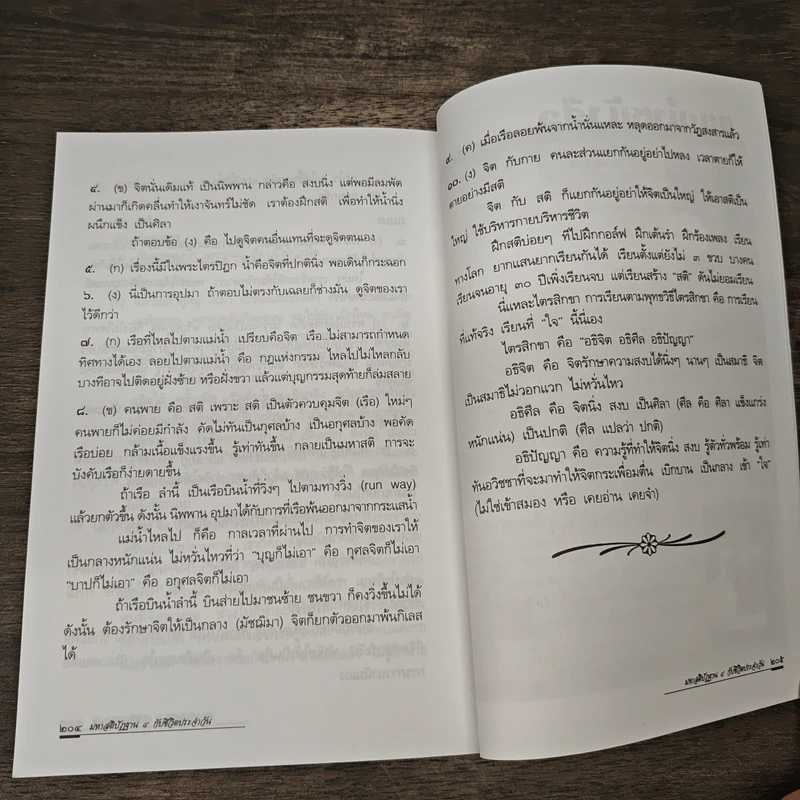 ๔. (ข) จิตนั่นเดิมแท้ เป็นนิพพาน กล่าวคือ สงบนิ่ง แต่พอมีลมพัด
ผ่านมาก็เกิดคลื่นทำให้เงาจันทร์ไม่ชัด เราต้องฝึกสติ เพื่อทำให้น้ำนิ่ง
ผนึกแข็ง เป็นศิลา
ถ้าตอบข้อ (ง) คือ ไปดูจิตคนอื่นแทนที่จะดูจิตตนเอง
๕. (ก) เรื่องนี้มีในพระไตรปิฎก น้ำคือจิตที่ปกตินิ่ง พอเดินก็กระฉอก
๖. (ง) นี่เป็นการอุปมา ถ้าตอบไม่ตรงกับเฉลยก็ช่างมัน ดูจิตของเรา
ไว้ดีกว่า
๗. (ก) เรือที่ไหลไปตามแม่น้ำ เปรียบคือจิต เรือ..ไม่สามารถกำหนด
ทิศทางได้เอง ลอยไปตามแม่น้ำ คือ กฎแห่งกรรม ไหลไปไม่ไหลกลับ
บางทีอาจไปติดอยู่ฝั่งซ้าย หรือฝั่งขวา แล้วแต่บุญกรรมสุดท้ายก็ล่มสลาย
๘. (ข) คนพาย คือ สติ เพราะ สติ เป็นตัวควบคุมจิต (เรือ) ใหม่ๆ
คนพายก็ไม่ค่อยมีกำลัง คัดไม่ทันเป็นกุศลบ้าง เป็นอกุศลบ้าง พอคัด
เรือบ่อย กล้ามเนื้อแข็งแรงขึ้น รู้เท่าทันขึ้น กลายเป็นมหาสติ การจะ
บังคับเรือก็ง่ายดายขึ้น
ถ้าเรือ ลำนี้ เป็นเรือบินน้ำที่วิ่งๆ ไปตามทางวิ่ง (run way)
แล้วยกตัวขึ้น ดังนั้น นิพพาน อุปมาได้กับการที่เรือพ้นออกมาจากกระแสน้ำ
แม่น้ำไหลไป ก็คือ กาลเวลาที่ผ่านไป การทำจิตของเราให้
เป็นกลางหนักแน่น ไม่หวั่นไหวที่ว่า “บุญก็ไม่เอา” คือ กุศลจิตก็ไม่เอา
“บาปก็ไม่เอา” คือ อกุศลจิตก็ไม่เอา
ถ้าเรือบินน้ำลำนี้ บินส่ายไปมาชนซ้าย ชนขวา ก็คงวิ่งขึ้นไม่ได้
ดังนั้น ต้องรักษาจิตให้เป็นกลาง (มัชฌิมา) จิตก็ยกตัวออกมาพ้นกิเลส
ได้
๒๐๔ มหาสติปัฏฐาน ๔ กับชีวิตประจำวัน
๙. (ค) เมื่อเรือลอยพ้นจากน้ำนั่นแหละ หลุดออกมาจากวัฏสงสารแล้ว
๑๐. (ง) จิต กับกาย คนละส่วนแยกกันอยู่อย่าไปหลง เวลาตายก็ให้
ตายอย่างมีสติ
จิต กับ สติ ก็แยกกันอยู่อย่าให้จิตเป็นใหญ่ ให้เอาสติเป็น
ใหญ่ ใช้บริหารกายบริหารชีวิต
ฝึกสติบ่อยๆ ที่ไปฝึกกอล์ฟ ฝึกเต้นรำ ฝึกร้องเพลง เรียน
ทางโลก ยากแสนยากเรียนกันได้ เรียนตั้งแต่ยังไม่ ๓ ขวบ บางคน
เรียนจนอายุ ๓๐ ปีเพิ่งเรียนจบ แต่เรียนสร้าง “สติ” ดันไม่ยอมเรียน
นี่แหละไตรสิกขา การเรียนตามพุทธวิธีไตรสิกขา คือ การเรียน
ที่แท้จริง เรียนที่ “ใจ” นี้นี่เอง
ไตรสิกขา คือ “อธิจิต อธิศีล อธิปัญญา”
อธิจิต คือ จิตรักษาความสงบได้นิ่งๆ นานๆ เป็นสมาธิ จิต
เป็นสมาธิไม่วอกแวก ไม่หวั่นไหว
อธิศีล คือ จิตนิ่ง สงบ เป็นศิลา (ศีล คือ ศิลา แข็งแกร่ง
หนักแน่น) เป็นปกติ (ศีล แปลว่า ปกติ)
อธิปัญญา คือ ความรู้ที่ทำให้จิตนิ่ง สงบ รู้ตัวทั่วพร้อม รู้เท่า
ทันอวิชชาที่จะมาทำให้จิตกระเพื่อมตื่น เบิกบาน เป็นกลาง เข้า “ใจ”
(ไม่ใช่เข้าสมอง หรือ เคยอ่าน เคยจำ)
มหาสติปัฏฐาน ๔ กับชีวิตประจำวัน ๒๐๕